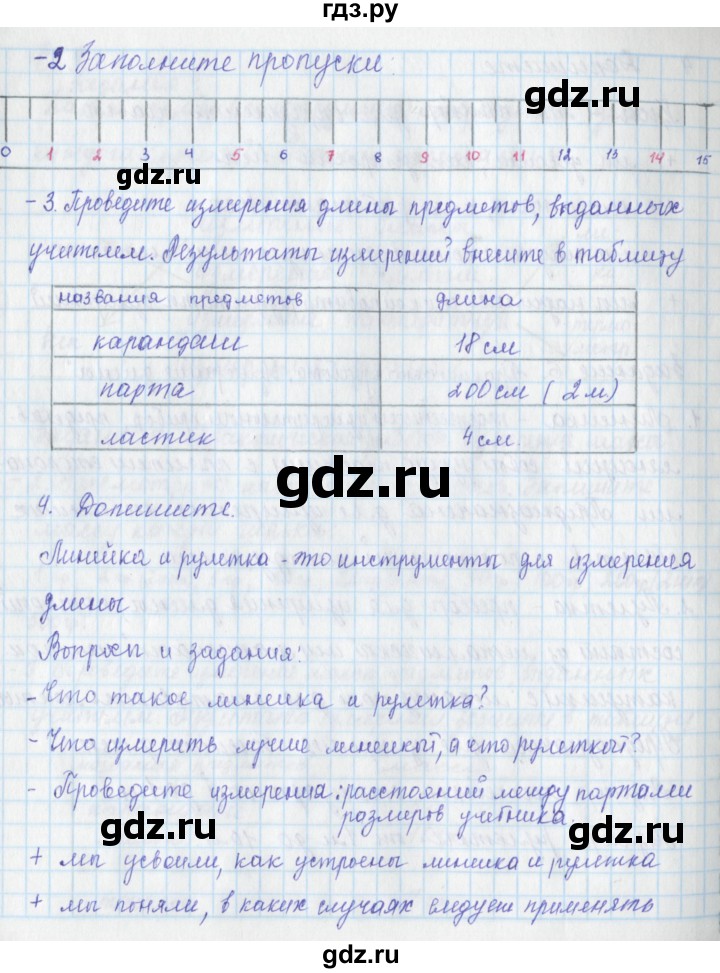 гдз.ру
-2 Заполните пропуски:
0 1 2 3 4 5 6 7 8 9 10 11 12 13 14 15
gdz.ru
gdz.ru
-3. Проведите измерения длины предметов, выданных
учителем. Результаты измерений внесите в таблицу
названия предметов длина
карандаш 18 см
парта 200 см (2 м)
ластик 4 см.
gdz.ru
4. Допишите.
Линейка и рулетка - это инструменты для измерения
длины
Вопросы и задания:
- Что такое линейка и рулетка?
- Что измерить лучше линейкой, а что рулеткой?
- Проведите измерения: расстояний между партами
размеров учебника.
gdz.ru
gdz.ru
+ мы усвоили, как устроены линейка и рулетка
+ мы поняли, в каких случаях следует применять
gdz.ru